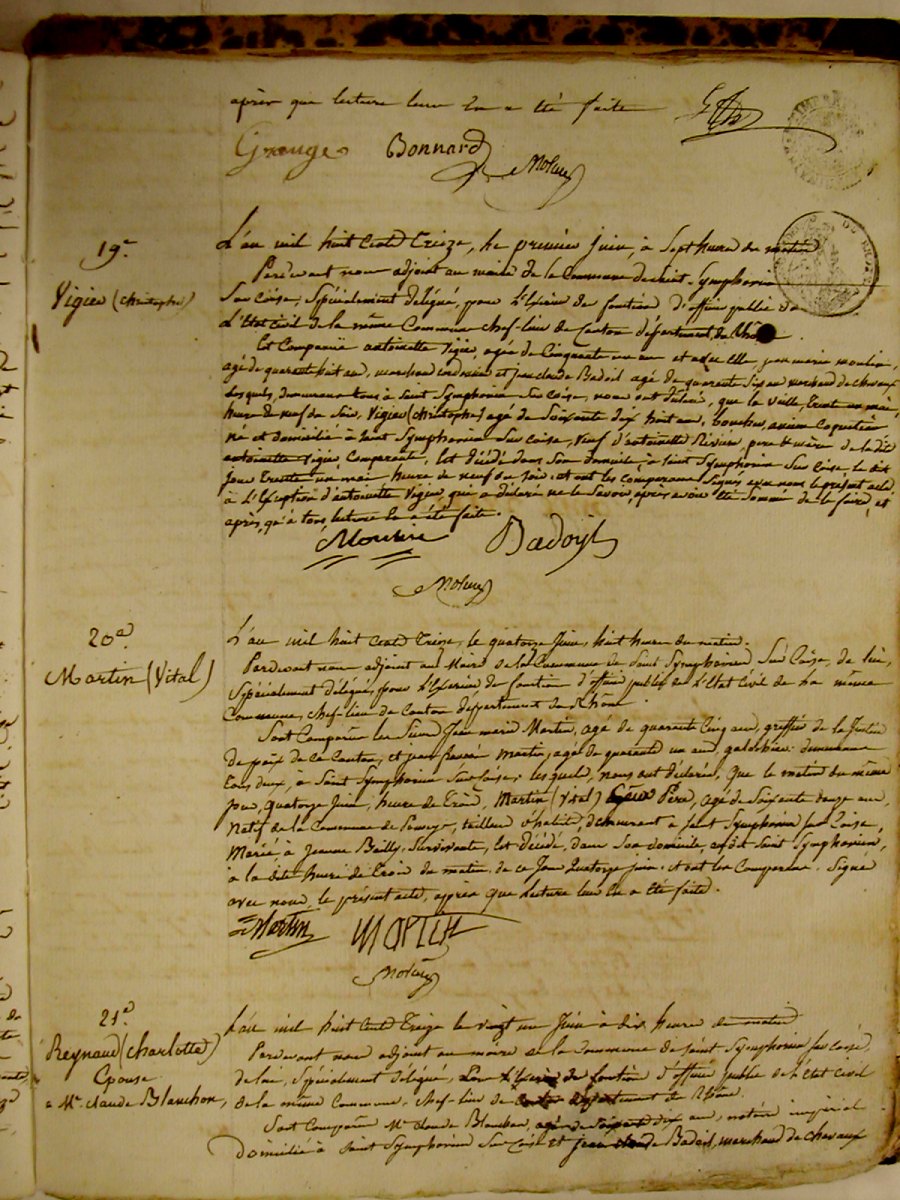 après que lecture leur en a été faite
Grange Bonnard
19e
Vigier (christophe)
L'an mil huit Cent Treize, le premier juin, à Sept heure du matin
Pardevant nous adjoint au maire de la Commune de saint-Symphorien
Sur Coise, Spécialement délégué, pour l'Exercice de fonction d'officier public de
L'Etat Civil de la même Commune chef-lieu de Canton département du Rhône.
Est Comparüe antoinette Vigier, agée de Cinquante un an et avec Elle, jean marie moulin,
agé de quarante huit ans, marchand et jean claude Badoil agé de quarante Six ans marchand de chevaux
Lesquels, demeurans tous à Saint Symphorien Sur Coise, nous ont déclaré, que la veille, trente un mai,
heure de neuf du Soir, Vigier (christophe) agé de Soixante dix huit ans, boucher,
né et domicilié à Saint Symphorien Sur Coise, veuf d'antoinette pere de la dite
antoinette Vigier, Comparante, Est décédé dans Son domicile, à Saint Symphorien Sur Coise le dit
jour trente un mai heure de neuf du Soir: et ont les comparans Signés avec nous le présent acte
à L'Exception d'antoinette Vigier, que a déclaré ne le Savoir, après avoir été sommée de le faire, et
après, qu'à tous lecture en a été faite.
Badoyl
20e
Martin (Vital)
L'an mil huit Cent Treize, le quatorze Juin, huit heure du matin.
Pardevant nous adjoint au Maire de la Commune de Saint Symphorien Sur Coise, de lui,
Spécialement délégué, pour l'Exercice de fonction d'officier public de L'Etat Civil de La même
Commune, chef-lieu de Canton département du Rhône.
Sont Comparus les Sieurs Jean marie Martin, agé de quarante Cinq ans, greffier de la Justice
de paix de ce Canton, et jean martin, agé de quarante un ans, demeurans
tous deux, à Saint Symphorien Sur Coise, lesquels, nous ont déclarés, Que le matin du même
jour, quatorze Juin, heure de Trois, Martin (Vital) Père, agé de Soixante douze ans,
Natif de la Commune de tailleur d'habit, demeurant à Saint Symphorien Sur Coise,
Marié à Jeanne Bailly, Survivante, Est décédé, dans Son domicile, audit Saint Symphorien,
à la dite heure de Trois du matin, de ce Jour Quatorze juin: et ont les Comparans Signé
avec nous, le présent acte, après que Lecture leur en a été faite.
Martin MARTIN
21e
Reynaud (Charlotte)
Epouse
a Mr. claude Blanchon,
L'an mil huit Cent Treize le vingt un Juin à dix heure du matin
Pardevant nous adjoint au maire de la Commune de Saint Symphorien Sur Coise,
de lui, Spécialement délégué, Pour l'Exercice de fonction d'officier public de L'Etat Civil
de la même Commune, chef-lieu de Canton département du Rhône.
Sont Comparus Mr. claude Blanchon, agé de Soixante dix ans, notaire impérial
Domicilié à Saint Symphorien Sur Coise Et jean claude Badoil, marchand de chevaux